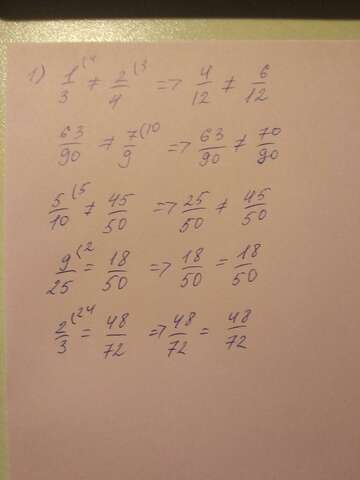 1) 1/3 (4 ≠ 2/4 (3 => 4/12 ≠ 6/12
63/90 ≠ 7/9 (10 => 63/90 ≠ 70/90
5/10 (5 ≠ 45/50 => 25/50 ≠ 45/50
9/25 (2 = 18/50 => 18/50 = 18/50
2/3 (24 = 48/72 => 48/72 = 48/72